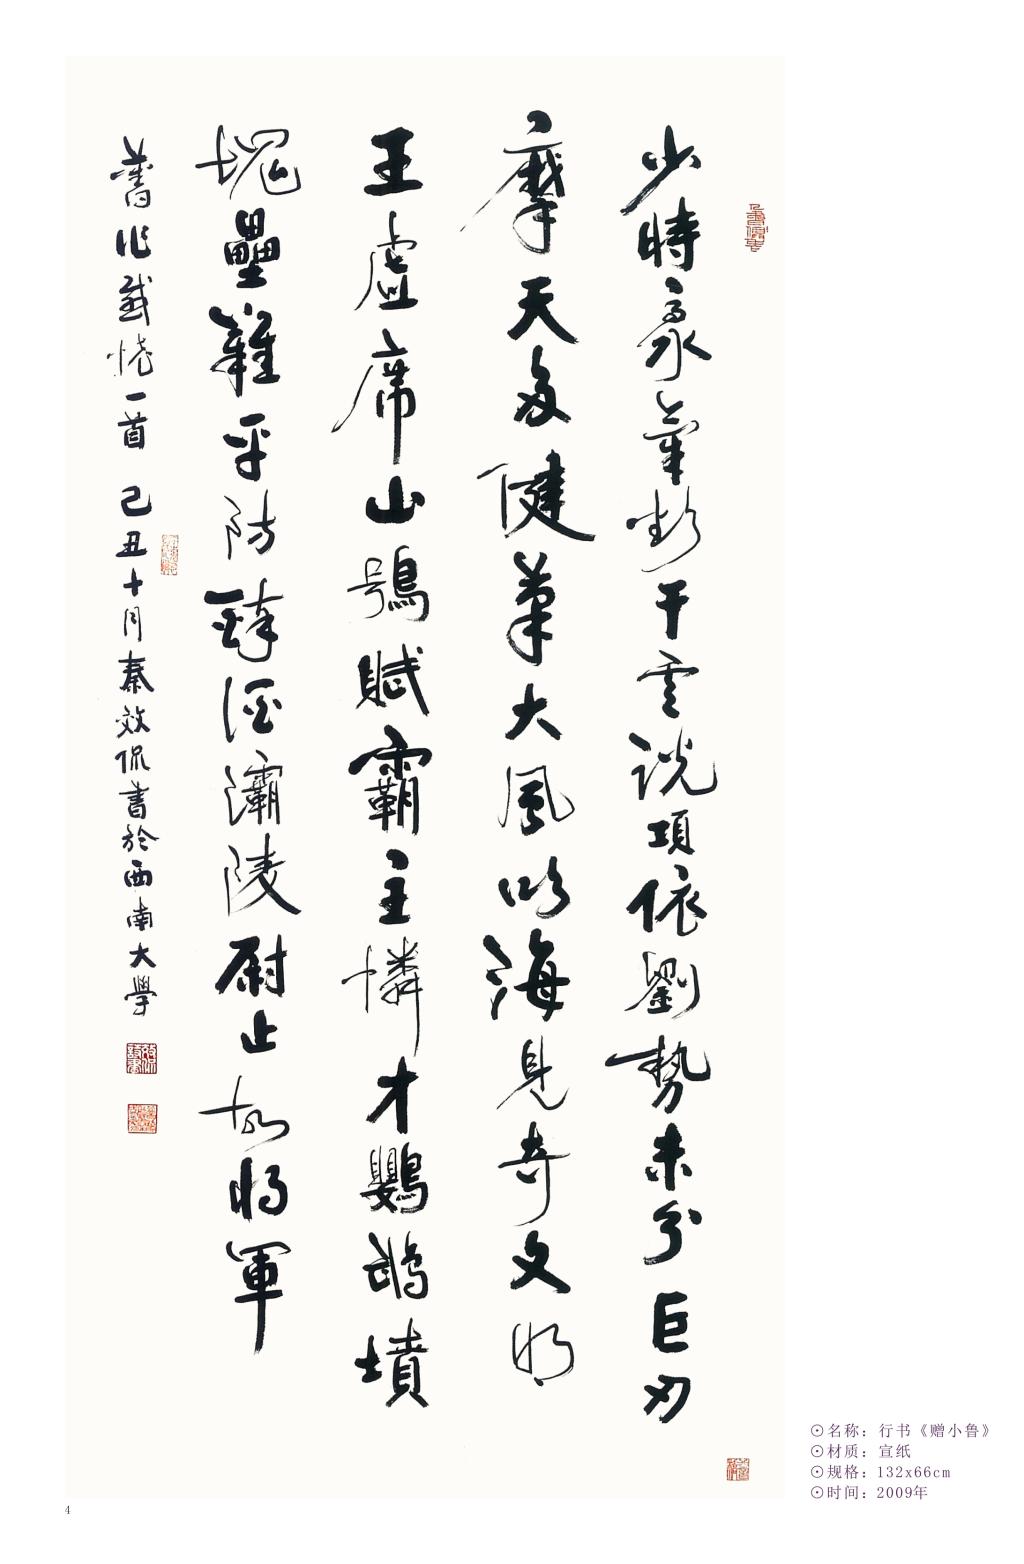 少時豪氣干雲說項依劉勢未分巨刃
摩天多健筆大風吹海見奇文明
王虛席山鴞賦霸主憐才鸚鵡墳
塊壘難平防醉酒灞陵尉止故將軍
舊作感懷一首 己丑十月秦效侃書於西南大學
⊙名称：行书《赠小鲁》
⊙材质：宣纸
⊙规格：132x66cm
⊙时间：2009年
4